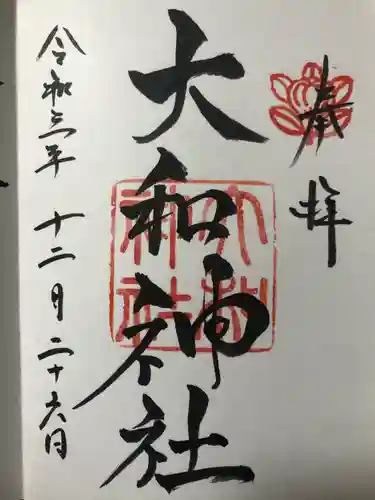 奉拝
大和神社
大和神社
令和三年 十二月二十六日